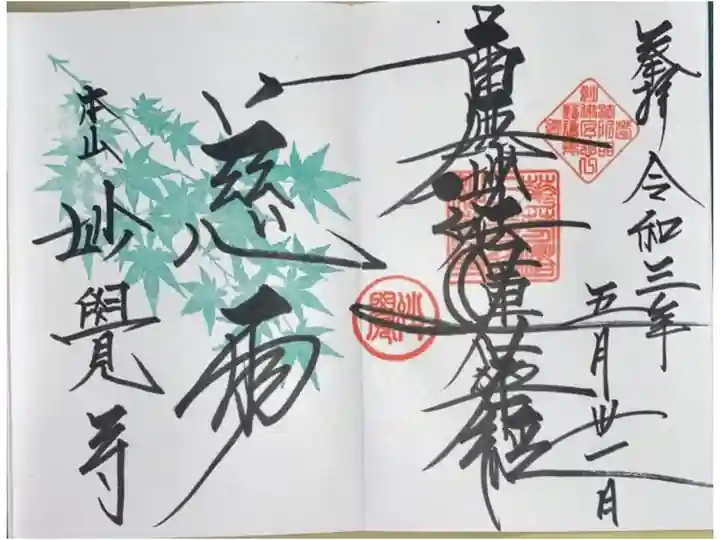 奉拝 令和三年
五月卅一日
南無妙法蓮華経
慈雨
本山 妙覺寺
妙覺